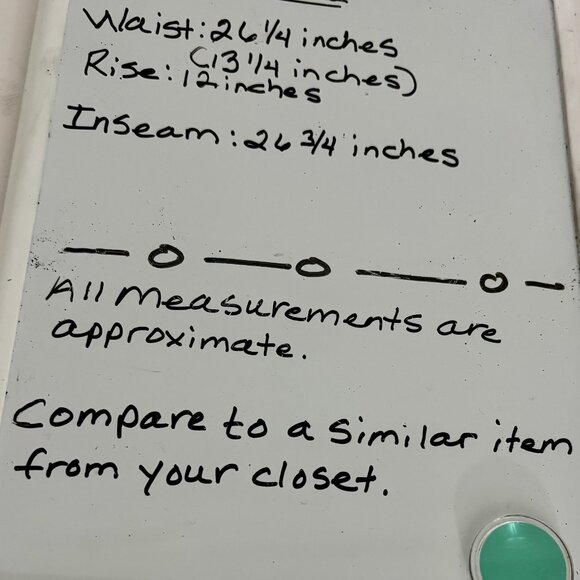 Waist: 26 1/4 inches
(13 1/4 inches)
Rise: 12 inches
Inseam: 26 3/4 inches
All measurements are
approximate.
Compare to a similar item
from your closet.